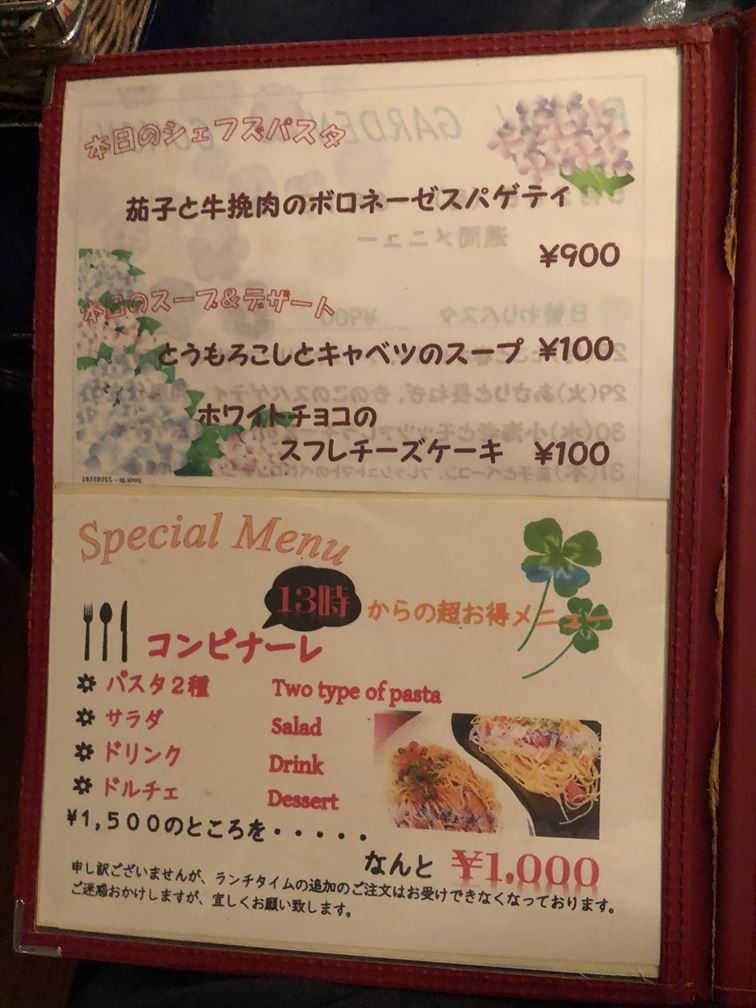 本日のシェフズパスタ
茄子と牛挽肉のボロネーゼスパゲティ
¥900
本日のスープ&デザート
とうもろこしとキャベツのスープ ¥100
ホワイトチョコの
スフレチーズケーキ ¥100
pixta.jp - 22085581
Special Menu
13時からの超お得メニュー
コンビナーレ
パスタ2種 Two type of pasta
サラダ Salad
ドリンク Drink
ドルチェ Dessert
¥1,500のところを・・・・・
なんと ¥1,000
申し訳ございませんが、ランチタイムの追加のご注文はお受けできなくなっております。
ご迷惑おかけしますが、宜しくお願い致します。